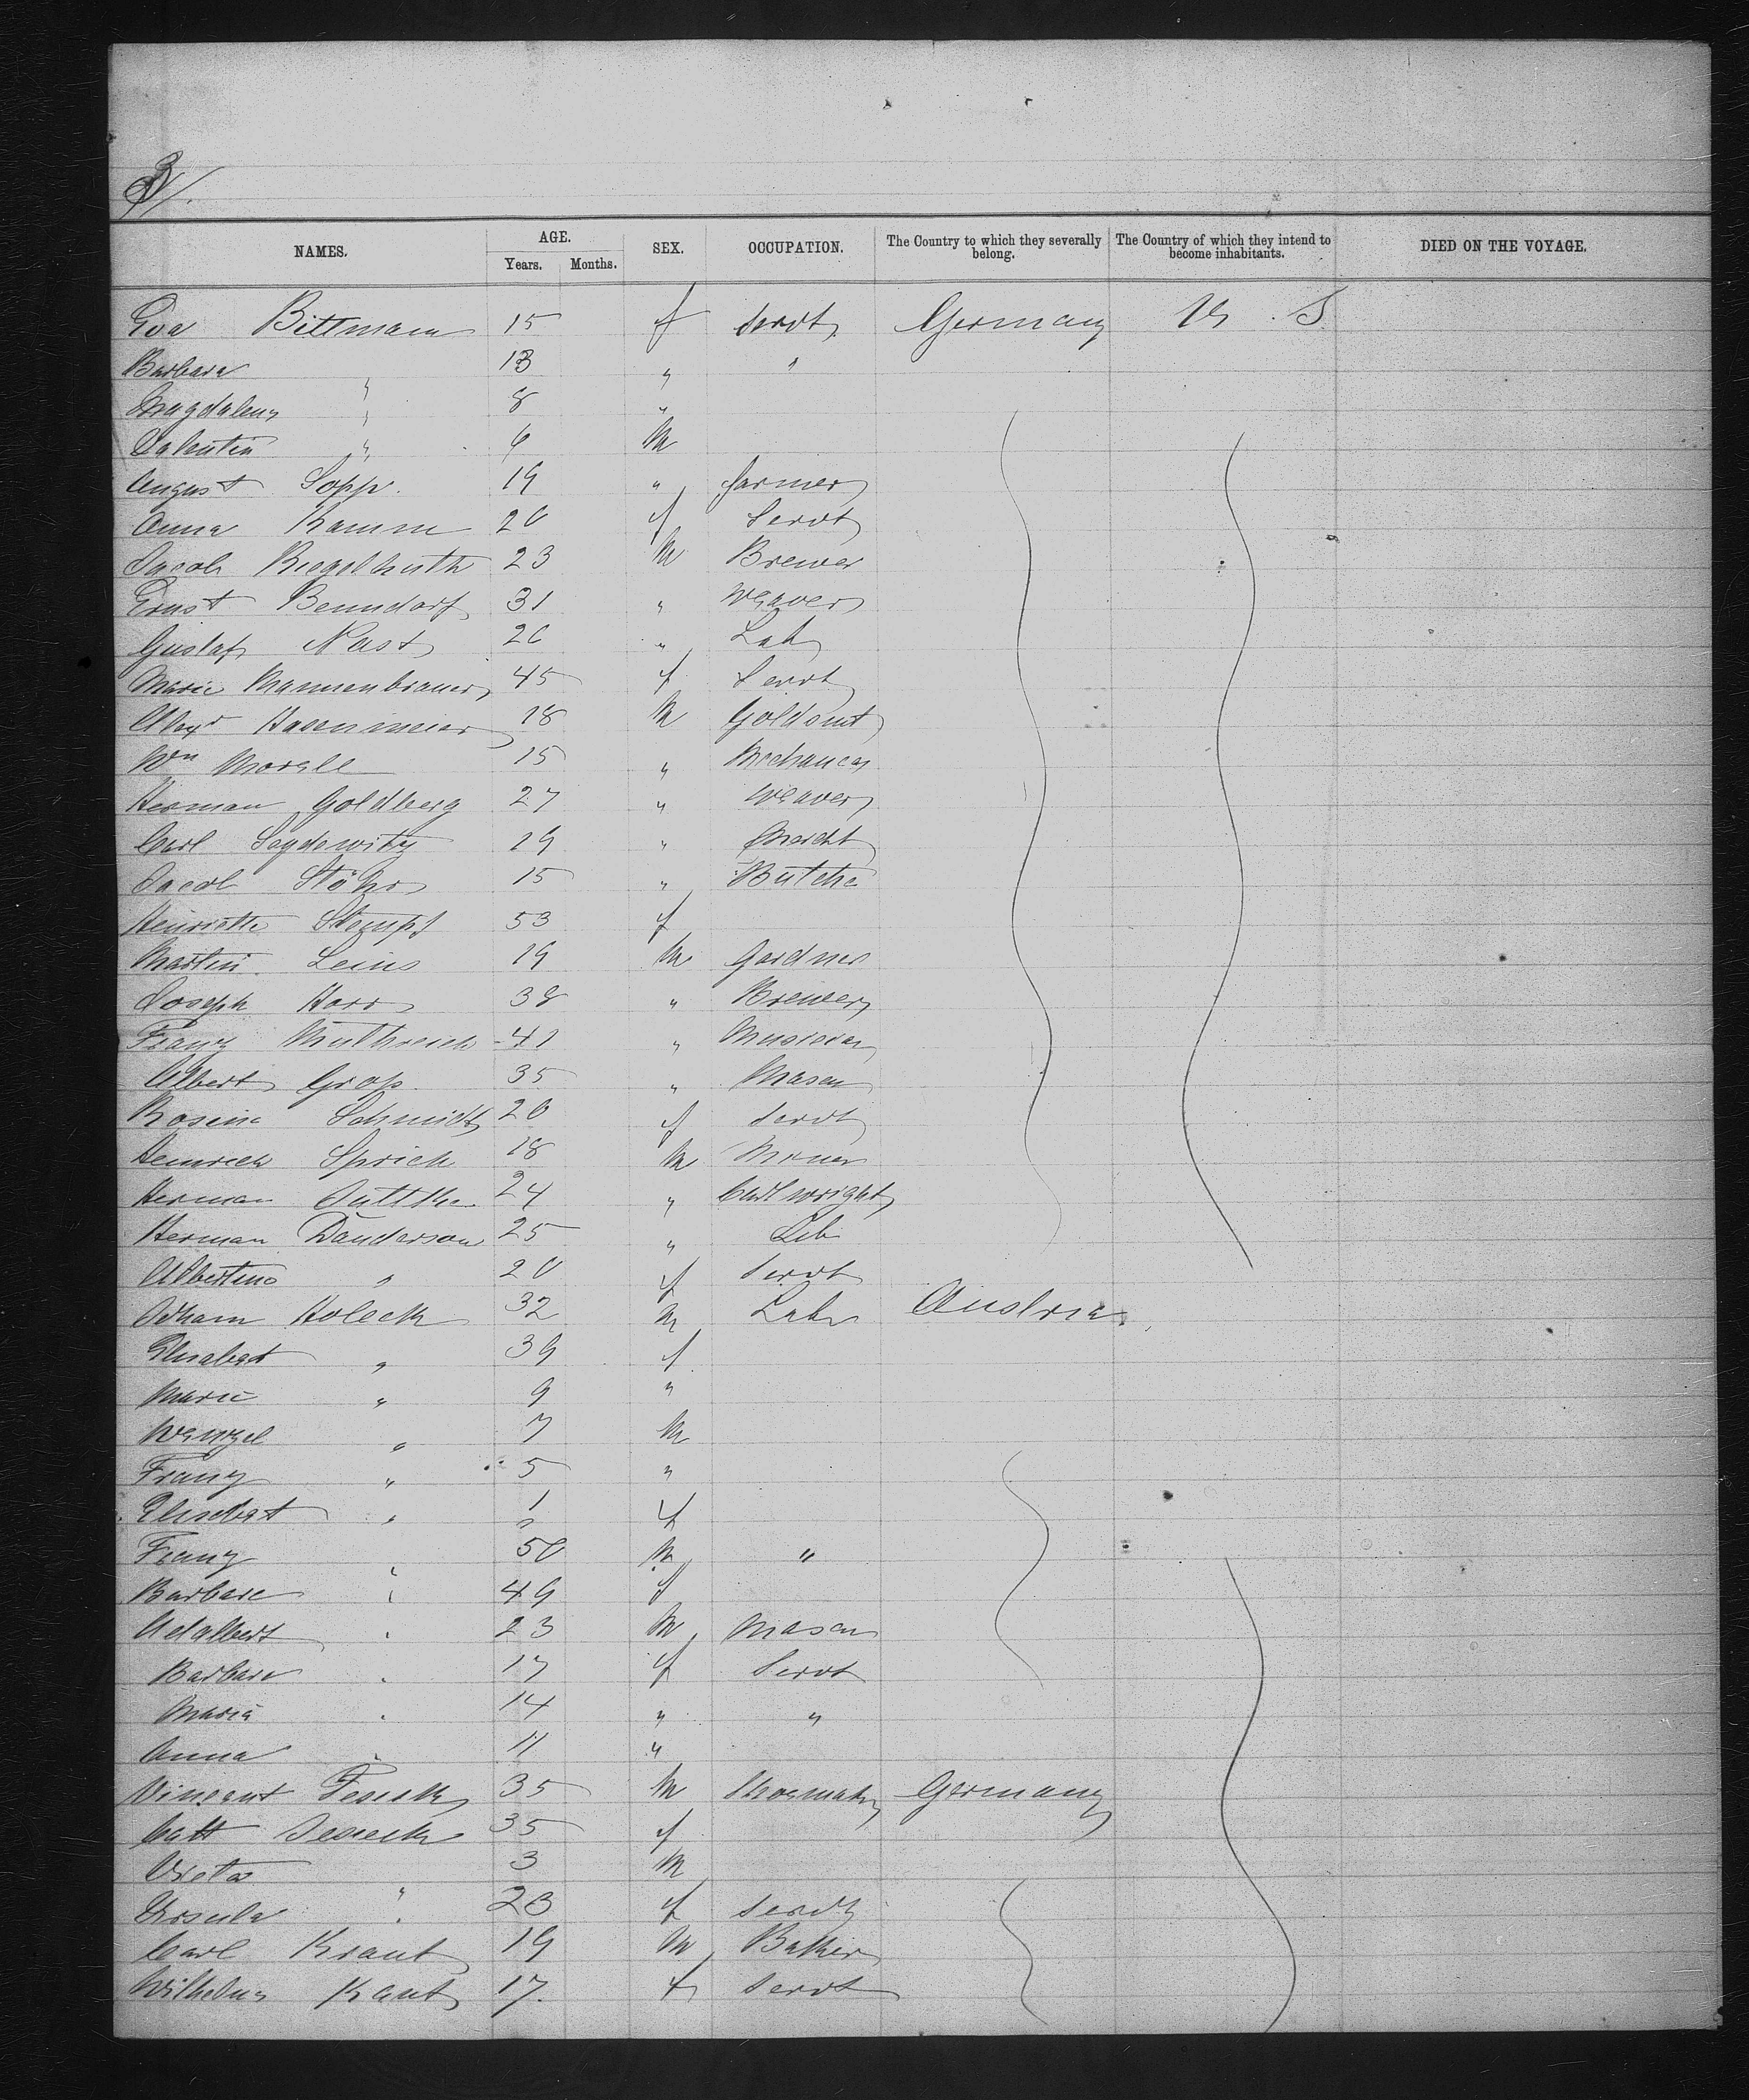 3/.
NAMES. AGE. Years. Months. SEX. OCCUPATION. The Country to which they severally belong. The Country of which they intend to become inhabitants. DIED ON THE VOYAGE.
Eva Bittmann 15 f Servt Germany U. S.
Barbara " 13 " "
Magdalena " 8 "
Valentin " 6 M
August Sopp. 19 " farmer
Anna Kamm 20 f Servt
Jacob Riegelhuth 23 M Brewer
Ernst Benndorf 31 " Weaver
Gustaf Nast 26 " Lab
Marie Mannenbrauer 45 f Servt
Alexr Hasenmeier 18 M Goldsmt
Wm 15 " Mechanca
Herman Goldberg 27 " Weaver
Carl Seydewitz 19 " Mercht
Jacob Stöhr 15 " Butche
Henriette Stempf 53 f
Martin Leins 19 M Gardner
Joseph Horr 38 " Brewer
Franz Muthreich 41 " Musician
Albert Gross 35 " Mason
Rosine Schmidt 20 f Servt
Heinrich Sprich 18 M Miner
Herman 24 " Cartwright
Herman Danderson 25 " Lab
Albertine " 20 f Servt
Adham Holeck 32 M Labr Austria
Elisabet " 39 f
Marie " 9 "
Wenzel " 7 M
Franz " 5 "
Elisabet " 1 f
Franz " 50 M "
Barbara " 49 f
Adalbert " 23 M Mason
Barbara " 17 f Servt
Maria " 14 " "
Anna " 11 "
Vincent 35 M Shoemakr Germany
Cath 35 f
3 M
Ursula " 23 f Servt
Carl Kraut 19 M Baker
Wilhelmn Kaut 17. f Servt